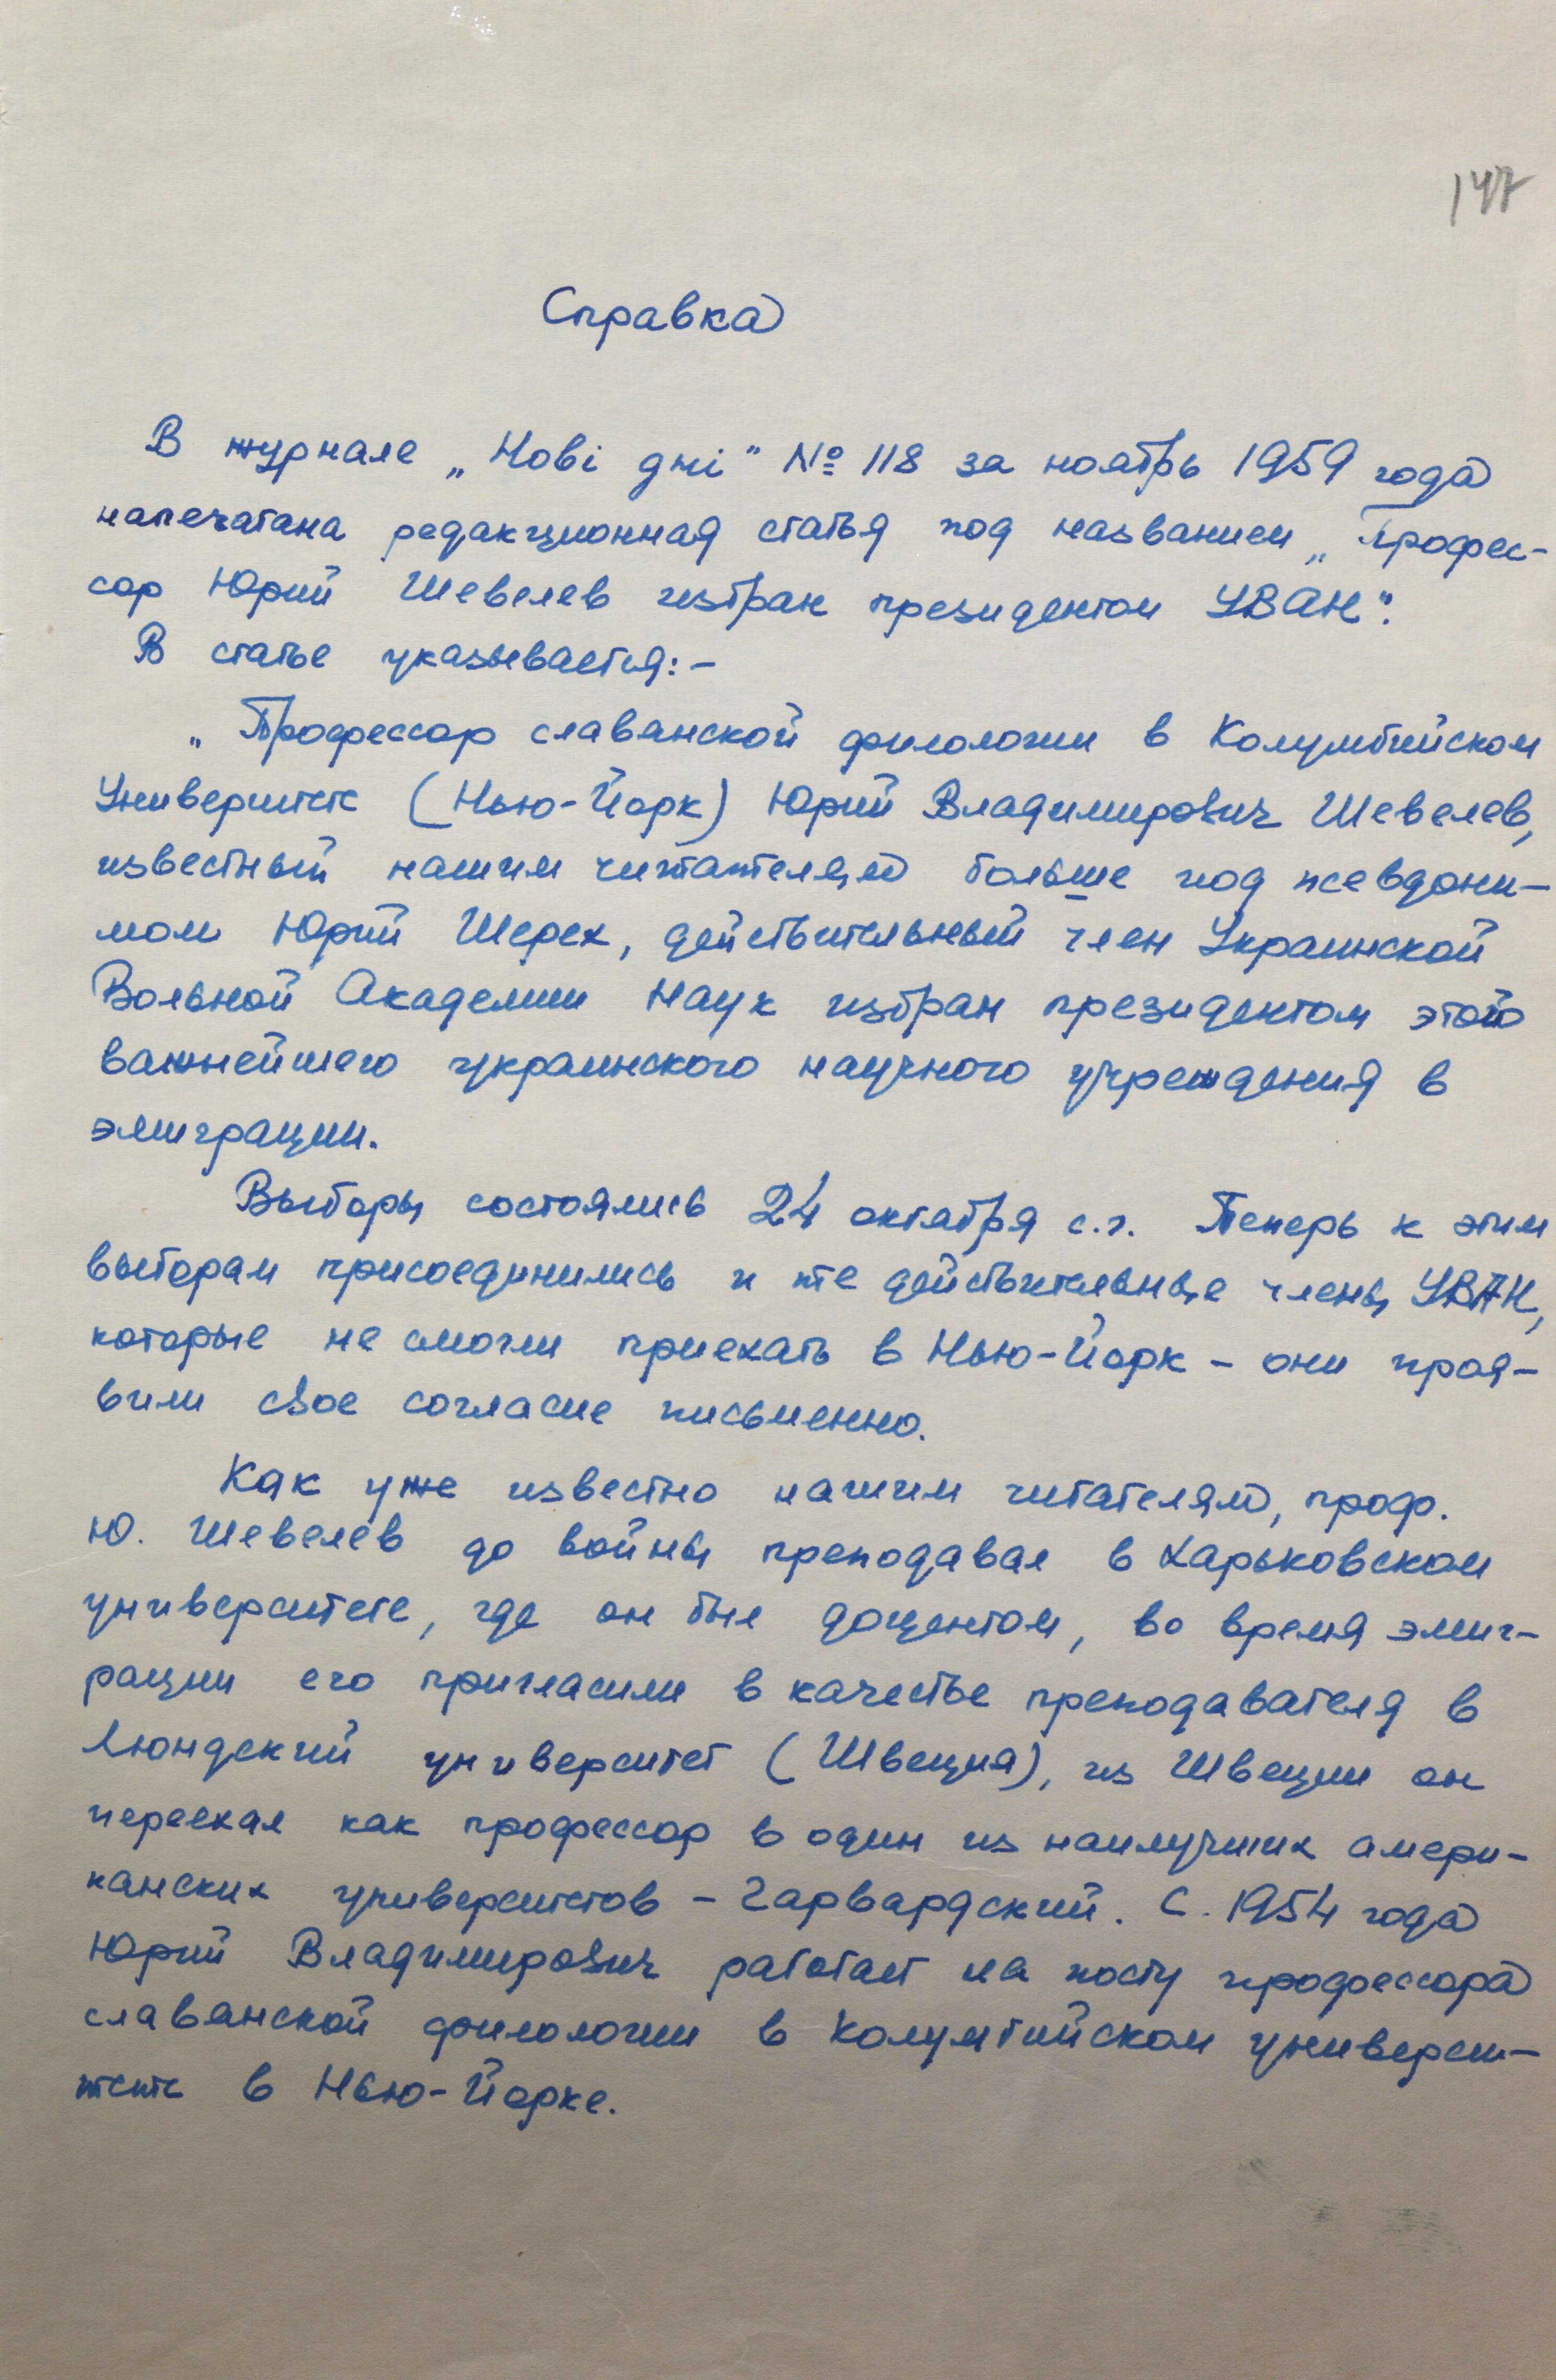 147
Справка
В журнале „Нові дні" № 118 за ноябрь 1959 года
напечатана редакционная статья под названием „Профес-
сор Юрий Шевелев избран президентом УВАН".
В статье указывается:-
„Профессор славянской филологии в Колумбийском
Университете (Нью-Йорк) Юрий Владимирович Шевелев,
известный нашим читателям больше под псевдони-
мом Юрий Шерех, действительный член Украинской
Вольной Академии Наук избран президентом этого
важнейшего украинского научного учреждения в
эмиграции.
Выборы состоялись 24 октября с.г. Теперь к этим
выборам присоединились и те действительные члены УВАН,
которые не смогли приехать в Нью-Йорк - они проя-
вили свое согласие письменно.
Как уже известно нашим читателям, проф.
Ю. Шевелев до войны преподавал в Харьковском
университете, где он был доцентом, во время эмиг-
рации его пригласили в качестве преподавателя в
Люндский университет (Швеция), из Швеции он
переехал как профессор в один из наилучших амери-
канских университетов - Гарвардский. С. 1954 года
Юрий Владимирович работает на посту профессора
славянской филологии в Колумбийском универси-
тете в Нью-Йорке.